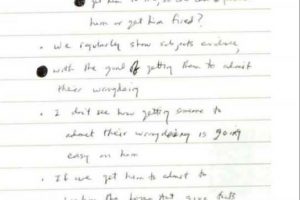 get him to lie, so we can
him or get him fired?
• We regularly show subjects evidence,
with the goal of getting them to admit
their wrongdoing
• I don't see how getting someone to
admit their wrongdoing is going
easy on him
• If we get him to admit to